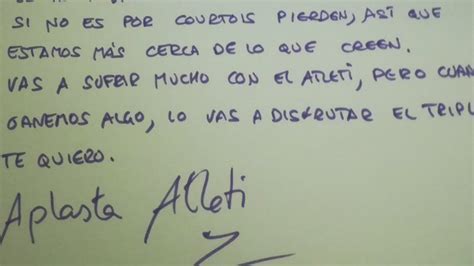 SI NO ES POR COURTOIS PIERDEN, ASÍ QUE
ESTAMOS MÁS CERCA DE LO QUE CREEN.
VAS A SUFRIR MUCHO CON EL ATLETI, PERO CUAN
GANEMOS ALGO, LO VAS A DISFRUTAR EL TRIPL
TE QUIERO.
Aplasta Atleti